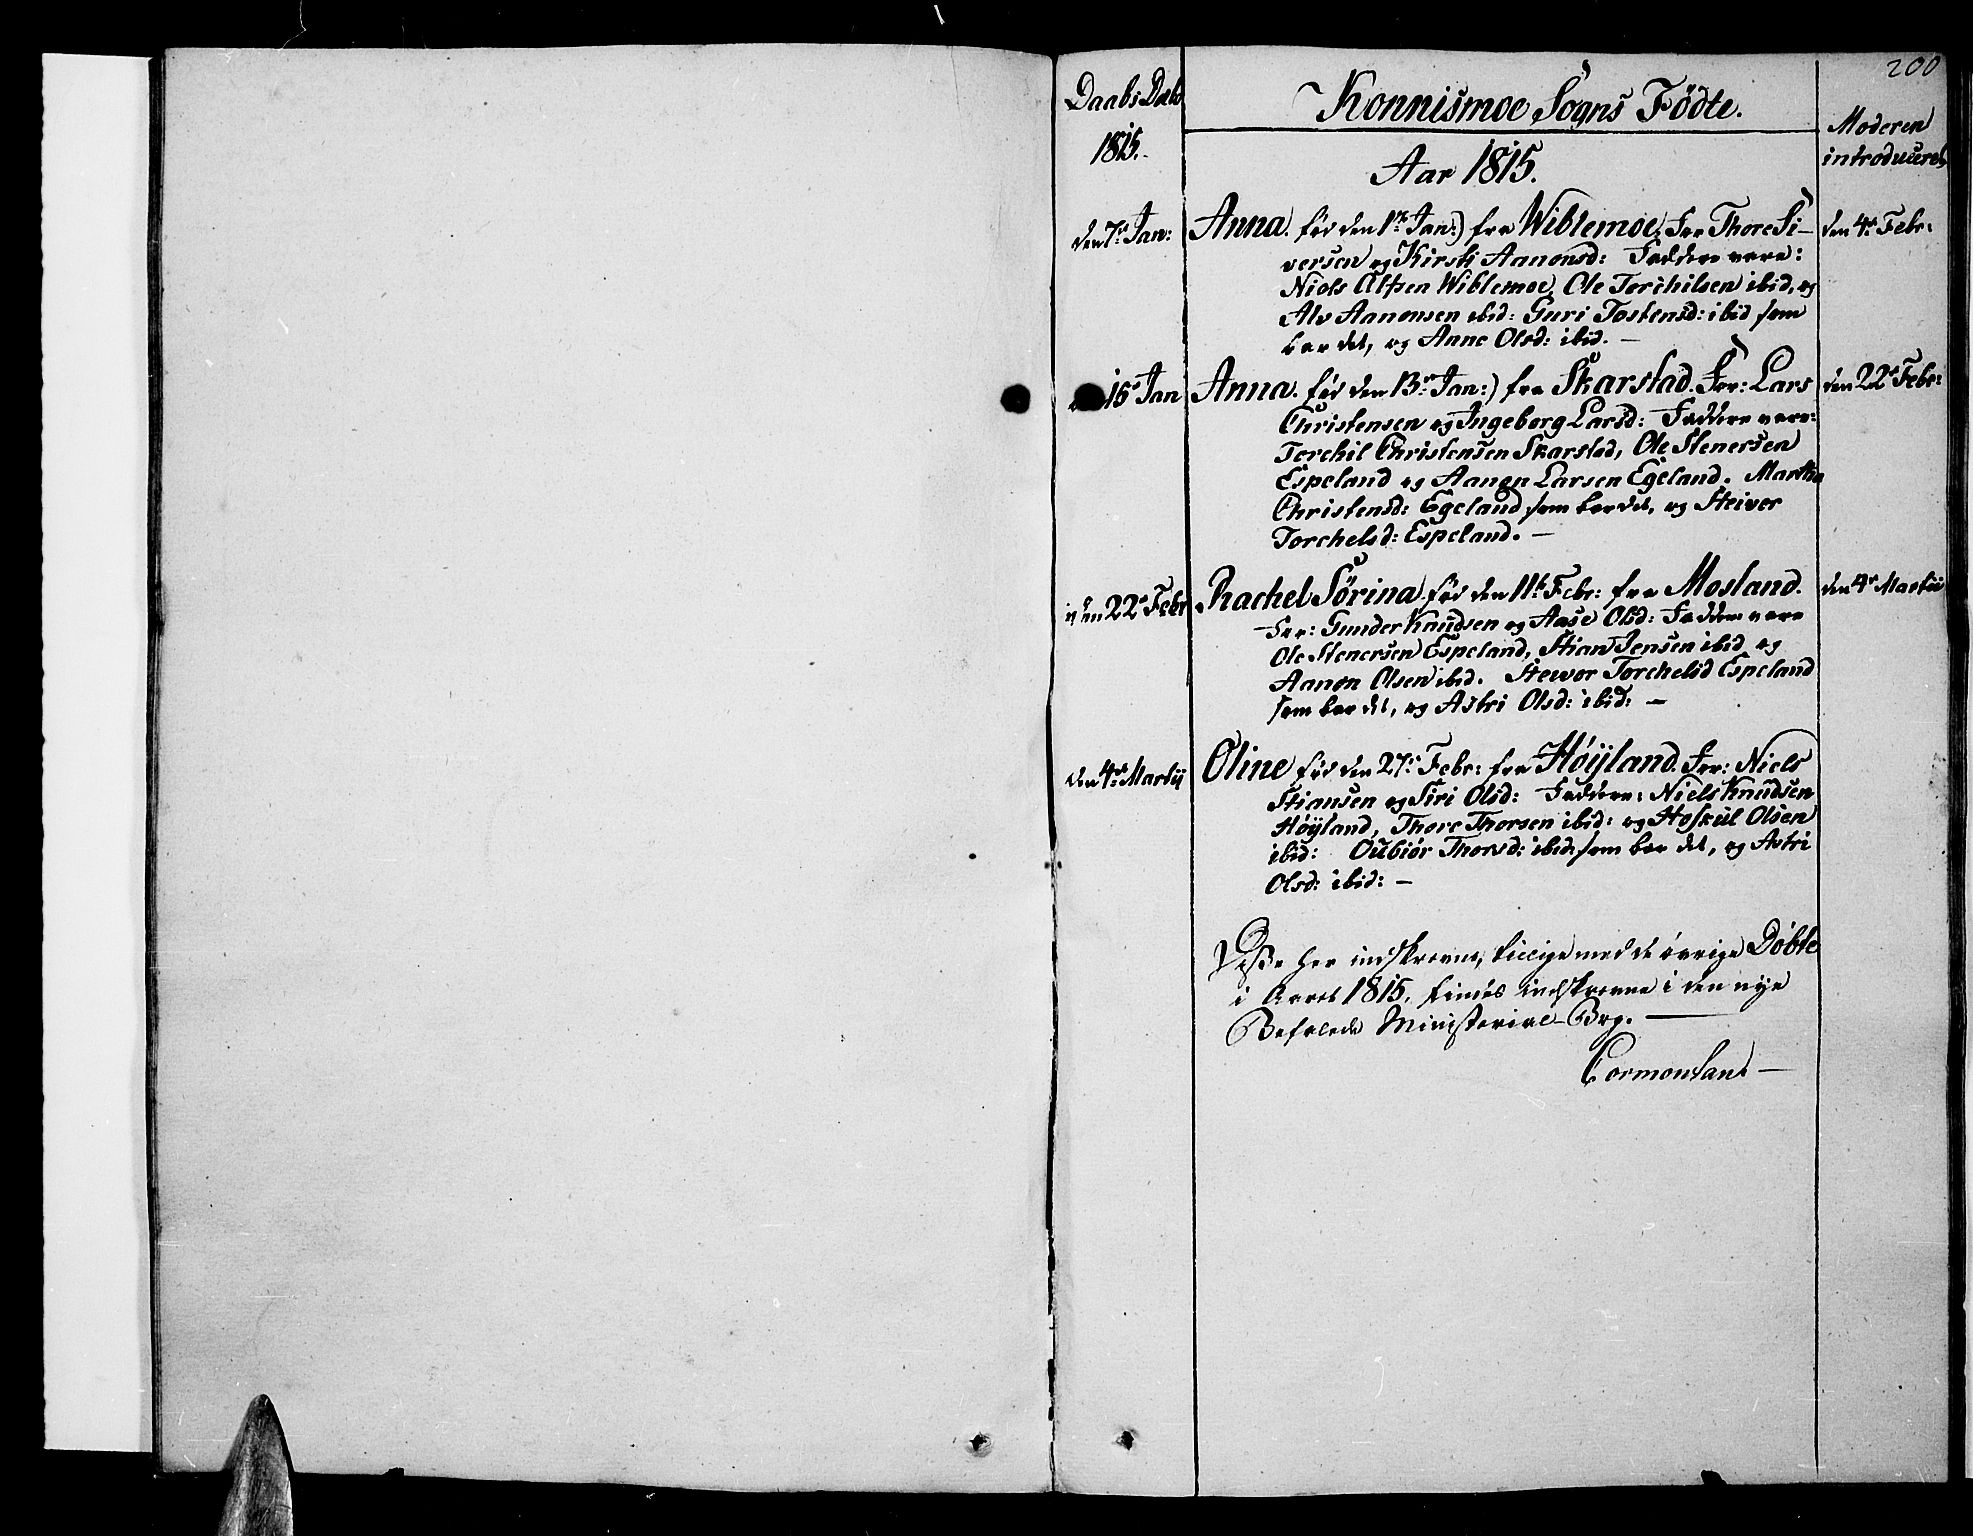 200
Daabs Dato
1815.
Konnismoe Sogns Fødte.
Moderen
introduceret
Aar 1815.
den 7de Jan: Anna. fød den 1ste Jan:) fra Wiblemoe, For Thore Si- den 4de Febr:
versen og Kirsti Aanonsd: Faddere vare:
Niels Alfsen Wiblemoe, Ole Torchilsen ibid, og
Alv Aanonsen ibid: Guri Tostensd: ibid som
bar det, og Anne Olsd: ibid. —
15de Jan Anna. fød den 13de Jan:) fra Skarstad. For: Lars den 22de Febr:
Christensen og Ingeborg Larsd: Faddere vare:
Torchil Christensen Skarstad, Ole Stenersen
Espeland og Aanon Larsen Egeland. Martha
Christensd: Egeland som bar det, og Steiver
Torchelsd: Espeland. —
den 22de Febr Rachel Sørina. fød den 11te Febr: fra Mosland. den 4de Martii
For: Gunder Knudsen og Aase Olsd: Faddere vare
Ole Stenersen Espeland, Stian Jensen ibid og
Aanon Olsen ibid. Stewor Torchelsd Espeland
som bar det, og Astri Olsd: ibid: —
den 4de Martij Oline fød den 27de Febr: fra Høyland. For: Niels
Stiansen og Siri Olsd: Faddere: Niels Knudsen
Høyland, Thore Thorsen ibid: og Hoskul Olsen
ibid: Oubiør Thorsd: ibid: som bar det, og Astri
Olsd: ibid: —
Disse her indskrevne, tillige med de øvrige Døbte
i Aaret 1815, findes indskrevne i den nye
Befalede Ministerial-Bog. —
Cormontan —